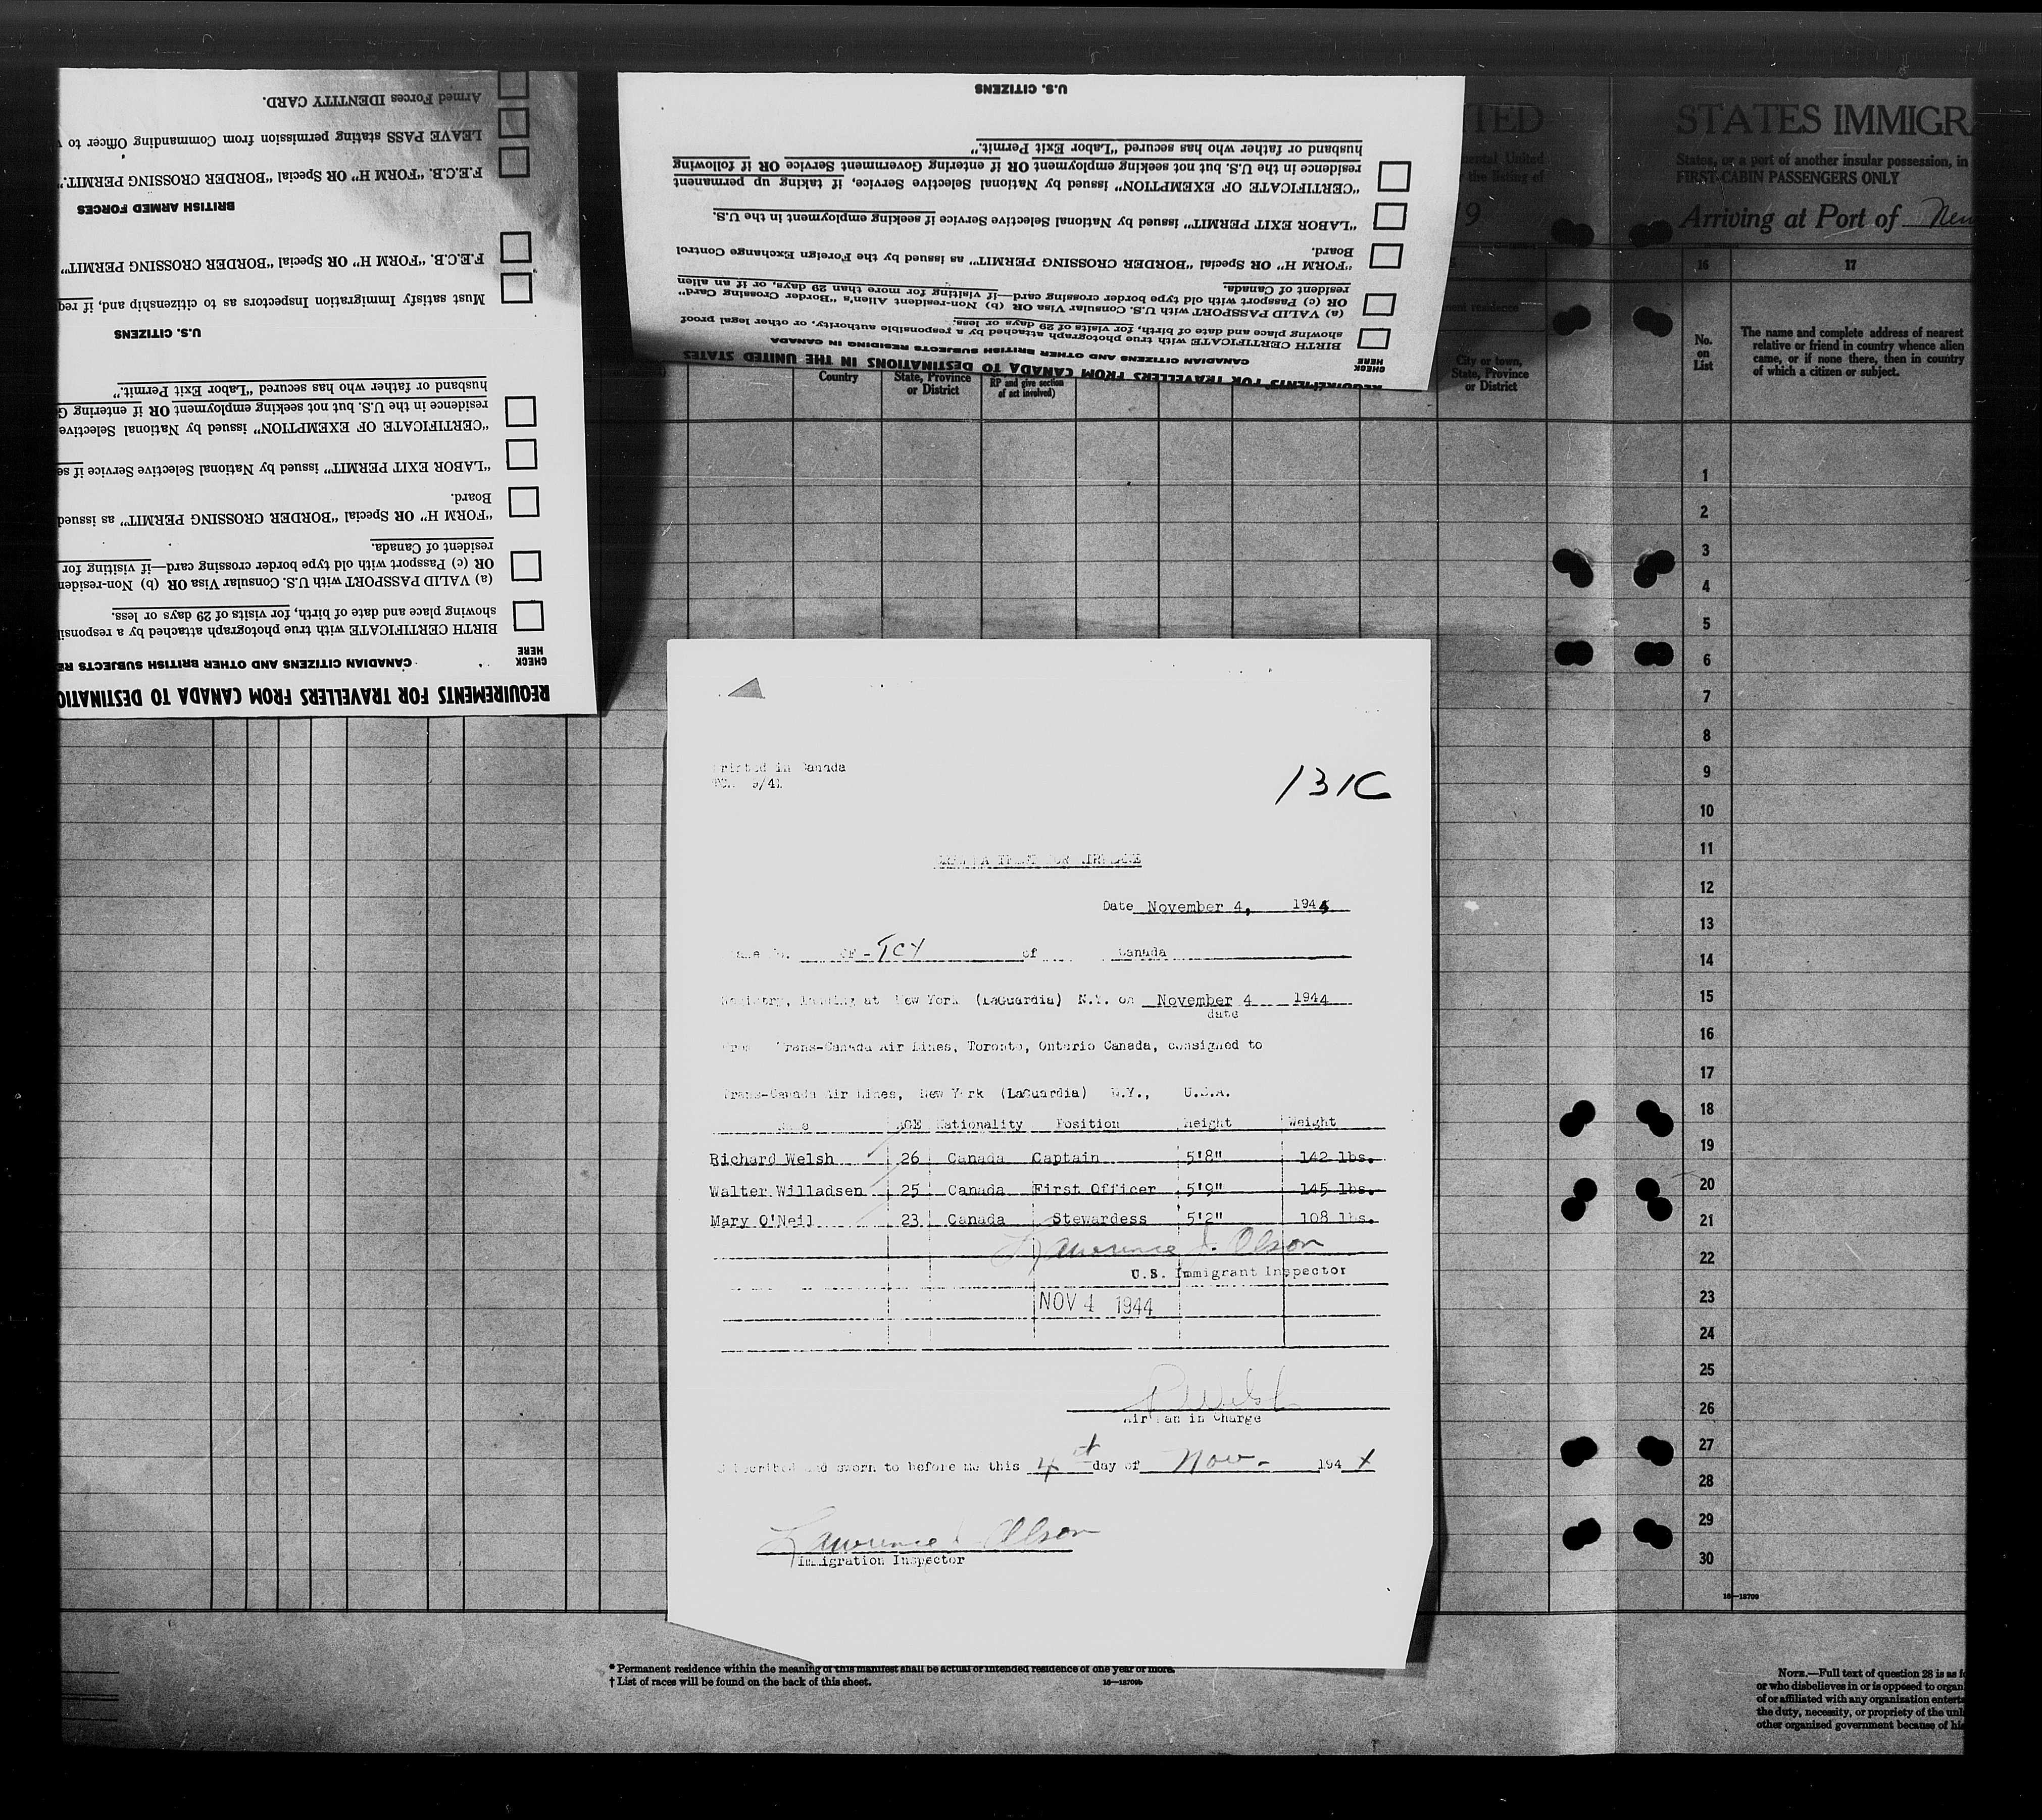 Armed Forces IDENTITY CARD.
LEAVE PASS stating permission from Commanding Officer to
F.E.C.B. "FORM H" OR Special "BORDER CROSSING PERMIT".
BRITISH ARMED FORCES
F.E.C.B. "FORM H" OR Special "BORDER CROSSING PERMIT"
Must satisfy Immigration Inspectors as to citizenship and, if req
U.S. CITIZENS
husband or father who has secured "Labor Exit Permit."
residence in the U.S. but not seeking employment OR if entering G
"CERTIFICATE OF EXEMPTION" issued by National Selective
"LABOR EXIT PERMIT" issued by National Selective Service if se
Board.
"FORM H" OR Special "BORDER CROSSING PERMIT" as issued
resident of Canada.
OR (c) Passport with old type border crossing card—if visiting for
(a) VALID PASSPORT with U.S. Consular Visa OR (b) Non-residen
showing place and date of birth, for visits of 29 days or less.
BIRTH CERTIFICATE with true photograph attached by a responsi
CHECK HERE
CANADIAN CITIZENS AND OTHER BRITISH SUBJECTS RE
REQUIREMENTS FOR TRAVELLERS FROM CANADA TO DESTINATIO
U.S. CITIZENS
husband or father who has secured "Labor Exit Permit."
residence in the U.S. but not seeking employment OR if entering Government Service OR if following
"CERTIFICATE OF EXEMPTION" issued by National Selective Service, if taking up permanent
"LABOR EXIT PERMIT" issued by National Selective Service if seeking employment in the U.S.
Board.
"FORM H" OR Special "BORDER CROSSING PERMIT" as issued by the Foreign Exchange Control
resident of Canada.
OR (c) Passport with old type border crossing card—if visiting for more than 29 days, or if an alien
(a) VALID PASSPORT with U.S. Consular Visa OR (b) Non-resident Alien's "Border Crossing Card"
showing place and date of birth, for visits of 29 days or less.
BIRTH CERTIFICATE with true photograph attached by a responsible authority, or other legal proof
CHECK HERE
CANADIAN CITIZENS AND OTHER BRITISH SUBJECTS RESIDING IN CANADA
REQUIREMENTS FOR TRAVELLERS FROM CANADA TO DESTINATIONS IN THE UNITED STATES
Country
State, Province
or District
RP and give section
of act involved)
City or town,
State, Province
or District
ITED
the listing of
9
STATES IMMIGRA
States, or a part of another insular possession, in
FIRST-CABIN PASSENGERS ONLY
Arriving at Port of New
16
17
No.
on
List
The name and complete address of nearest
relative or friend in country whence alien
came, or if none there, then in country
of which a citizen or subject.
1
2
3
4
5
6
7
8
9
10
11
12
13
14
15
16
17
18
19
20
21
22
23
24
25
26
27
28
29
30
16—18709
Printed in Canada
9/41
131C
FOR AIRPLANE
Date November 4, 1944
CF-TCY of Canada
Registry, landing at New York (LaGuardia) N.Y. on November 4 1944
date
From Trans-Canada Air Lines, Toronto, Ontario Canada, consigned to
Trans-Canada Air Lines, New York (LaGuardia) N.Y., U.S.A.
Name AGE Nationality Position Height Weight
Richard Welsh 26 Canada Captain 5'8" 142 lbs.
Walter Willadsen 25 Canada First Officer 5'9" 145 lbs.
Mary O'Neil 23 Canada Stewardess 5'2" 108 lbs.
Lawrence J. Olson
U.S. Immigrant Inspector
NOV 4 1944
R Welsh
Airman in Charge
Subscribed and sworn to before me this 4th day of Nov- 1944
Lawrence J. Olson
Immigration Inspector
* Permanent residence within the meaning of this manifest shall be actual or intended residence of one year or more.
† List of races will be found on the back of this sheet.
16—18709b
NOTE.—Full text of question 28 is as f
or who disbelieves in or is opposed to organ
of or affiliated with any organization enterta
the duty, necessity, or propriety of the unl
other organized government because of his